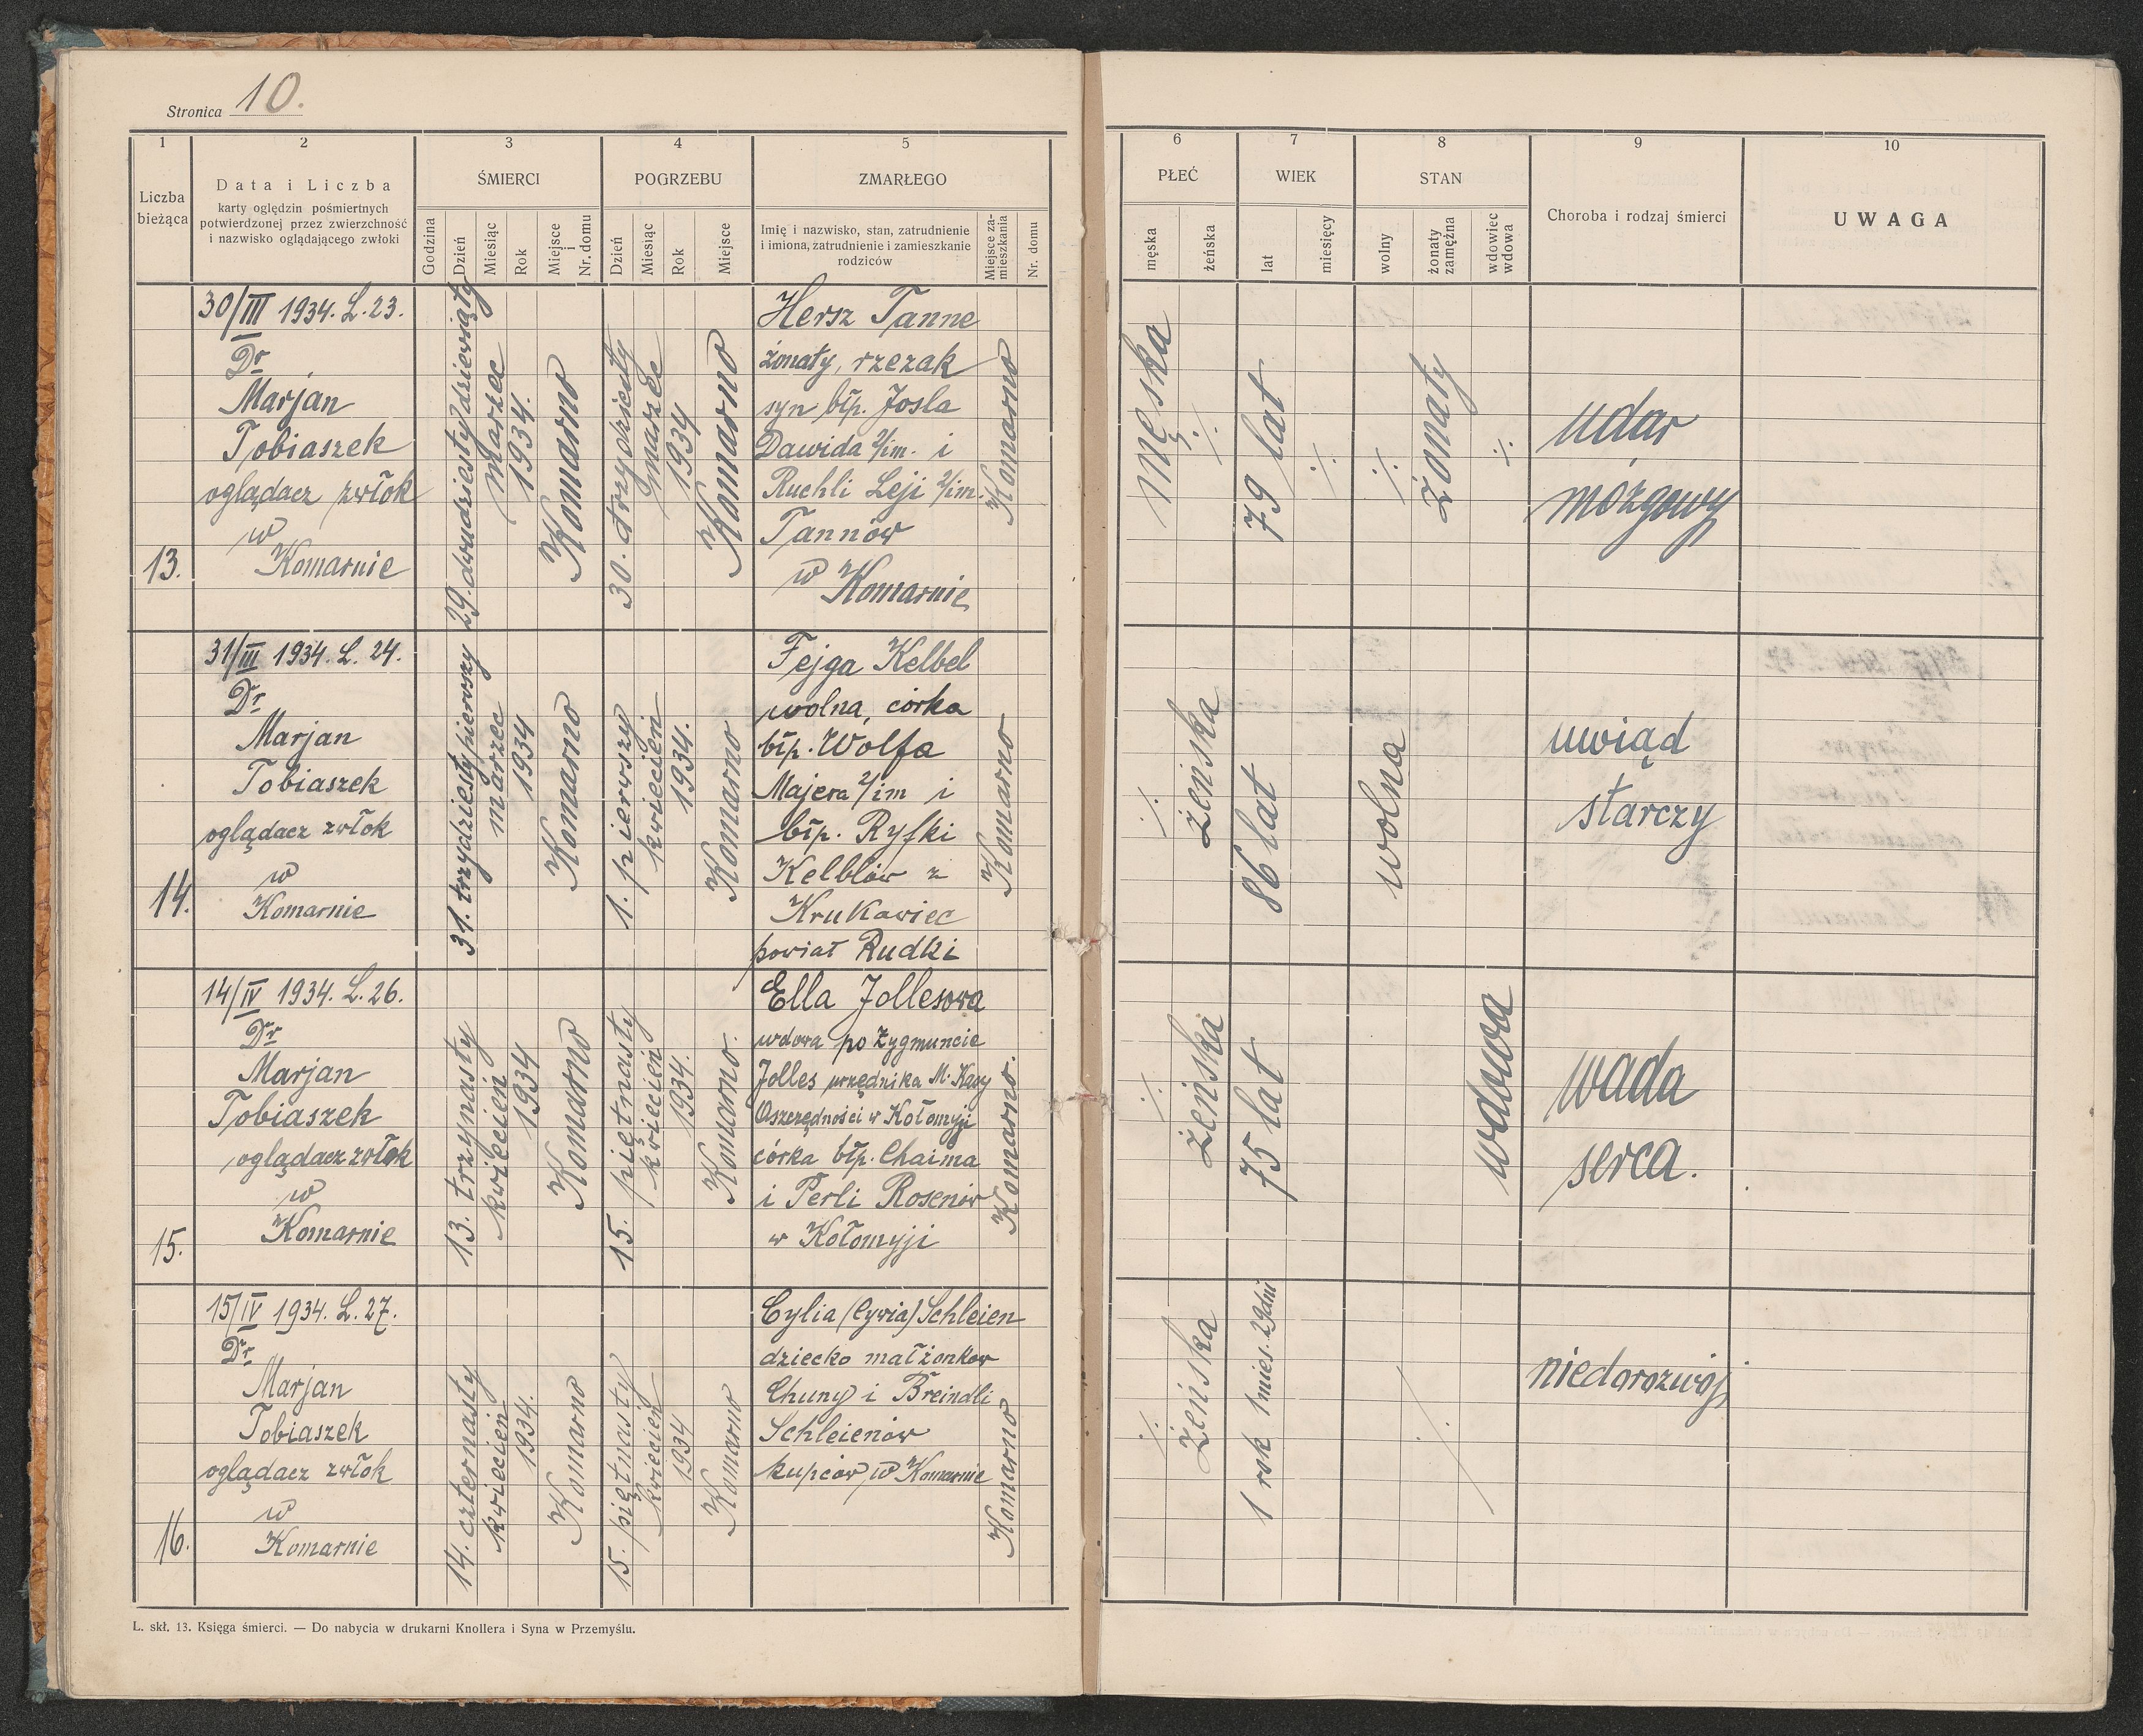 Stronica 10.
1 2 3 4 5 6 7 8 9 10
Liczba bieżąca
Data i Liczba
karty oględzin pośmiertnych
potwierdzonej przez zwierzchność
i nazwisko oglądającego zwłoki
ŚMIERCI
Godzina
Dzień
Miesiąc
Rok
Miejsce i Nr. domu
POGRZEBU
Dzień
Miesiąc
Rok
Miejsce
ZMARŁEGO
Imię i nazwisko, stan, zatrudnienie
i imiona, zatrudnienie i zamieszkanie
rodziców
Miejsce za-
mieszkania
Nr. domu
PŁEĆ
męska
żeńska
WIEK
lat
miesięcy
STAN
wolny
żonaty
zamężna
wdowiec
wdowa
Choroba i rodzaj śmierci
UWAGA
13.
30/III 1934. L. 23.
Dr
Marjan
Tobiaszek
oglądacz zwłok
w
Komarnie
29. dwudziesty dziewiąty
marzec
1934.
Komarno
30. trzydziesty
marzec
1934
Komarno
Hersz Tanne
żonaty, rzezak
syn błp. Josla
Dawida 2/im. i
Ruchli Leji 2/im.
Tannów
w Komarnie
Komarno
męska
·/·
79 lat
·/·
·/·
żonaty
·/·
udar
mózgowy
14.
31/III 1934. L. 24.
Dr
Marjan
Tobiaszek
oglądacz zwłok
w
Komarnie
31. trzydziesty pierwszy
marzec
1934
Komarno
1. pierwszy
kwiecień
1934.
Komarno
Fejga Kelbel
wolna, córka
błp. Wolfa
Majera 2/im i
błp. Ryfki
Kelblów z
Krukawiec
powiat Rudki
Komarno
·/·
żeńska
86 lat
wolna
uwiąd
starczy
15.
14/IV 1934. L. 26.
Dr
Marjan
Tobiaszek
oglądacz zwłok
w
Komarnie
13. trzynasty
kwiecień
1934
Komarno
15. piętnasty
kwiecień
1934.
Komarno.
Ella Jollesowa
wdowa po Zygmuncie
Jolles urzędnika M. Kasy
Oszczędności w Kołomyji
córka błp. Chaima
i Perli Rosenów
w Kołomyji
Komarno.
·/·
żeńska
75 lat
wdowa
wada
serca.
16.
15/IV 1934. L. 27.
Dr
Marjan
Tobiaszek
oglądacz zwłok
w
Komarnie
14. czternasty
kwiecień
1934.
Komarno
15. piętnasty
kwiecień
1934
Komarno
Cylia (Cywia) Schleien
dziecko małżonków
Chuny i Breindli
Schleienów
kupców w Komarnie
Komarno
·/·
żeńska
1 rok 1 mies. 29 dni
·/·
niedorozwój
L. skł. 13. Księga śmierci. — Do nabycia w drukarni Knollera i Syna w Przemyślu.